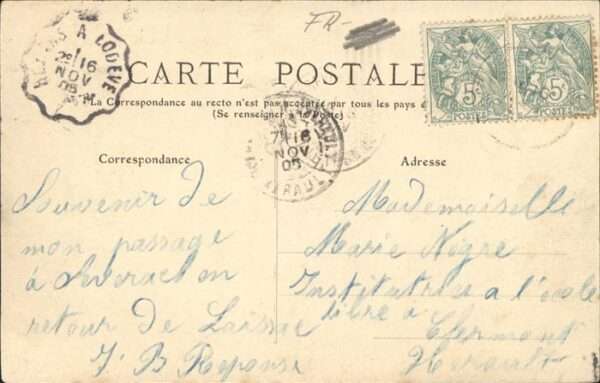 FR-
A LODEVE
16
NOV
05
5c
5c
POSTES
POSTES
CARTE POSTALE
La Correspondance au recto n'est pas acceptée par tous les pays
(Se renseigner à la Poste)
16
NOV
05
HERAULT
Correspondance
Adresse
Souvenir de
mon passage
à Severac en
retour de Laissac
J. B Reponse
Mademoiselle
Marie Nègre
Institutrice a l'école
libre à
Clermont
Herault